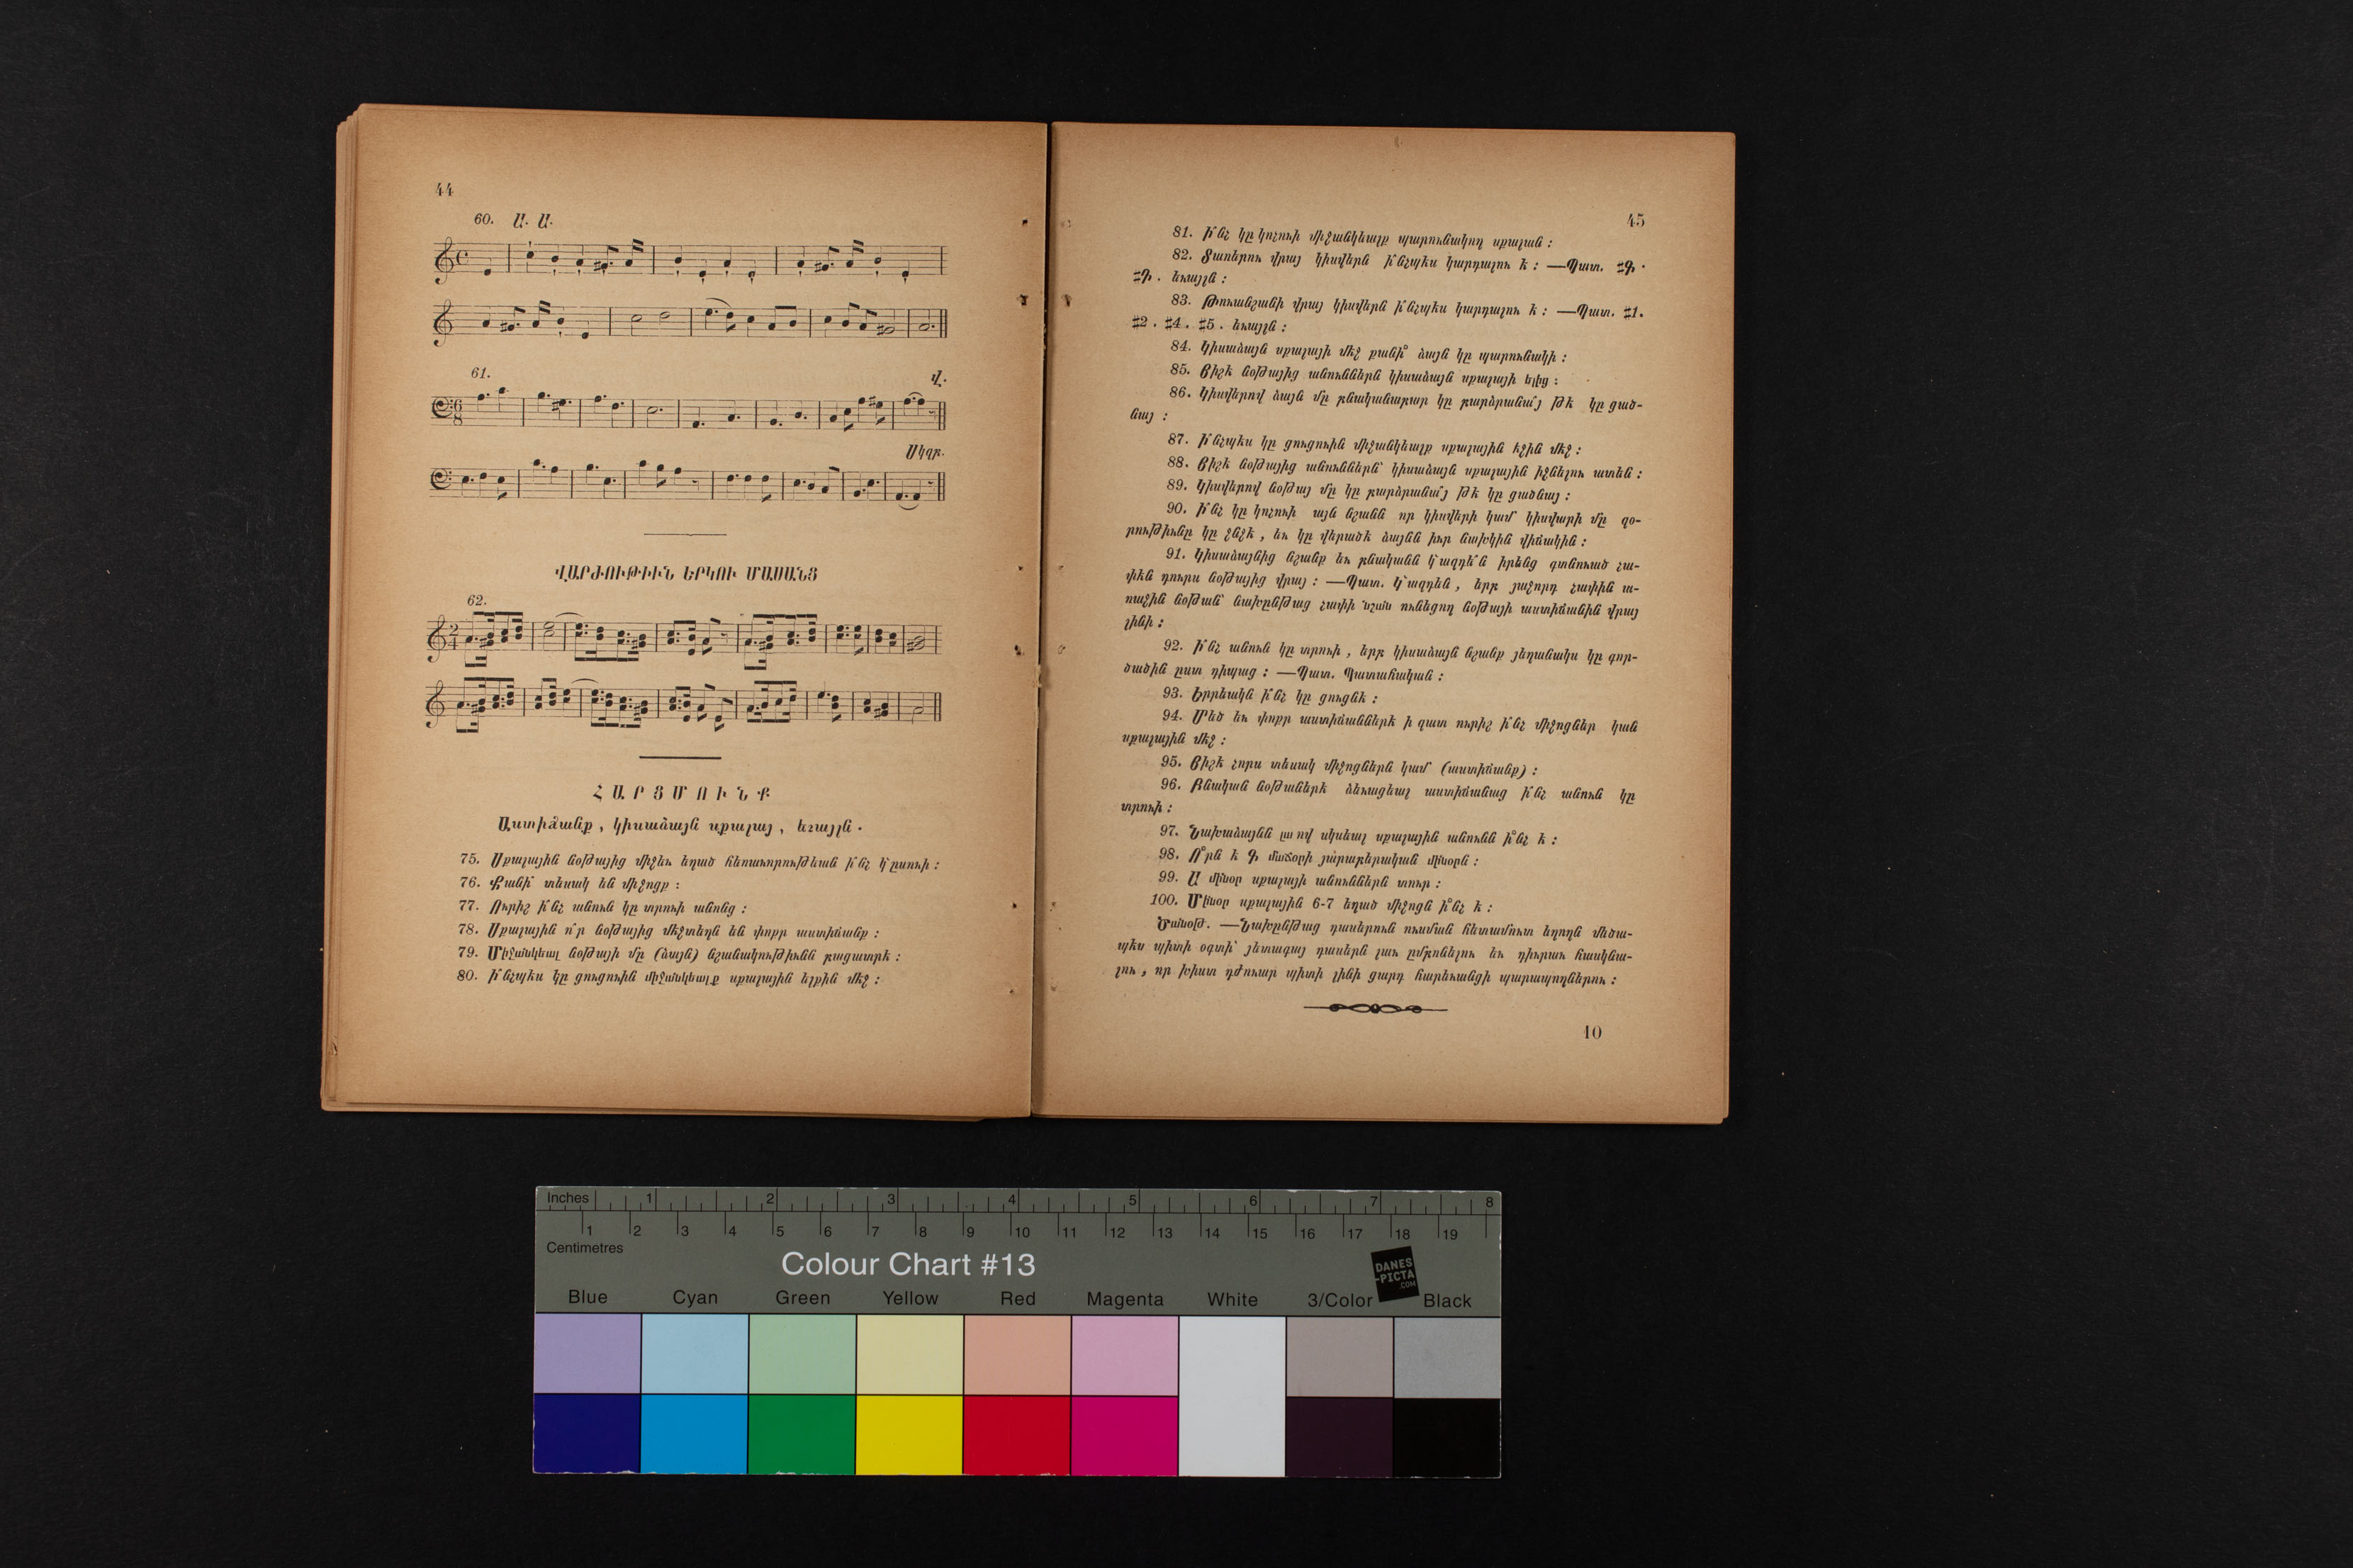 44
60. Ա. Ա.
61.
Վ.
Սկզբ.
ՎԱՐԺՈՒԹԻՒՆ ԵՐԿՈՒ ՄԱՍԱՆՑ
62.
ՀԱՐՑՄՈՒՆՔ
Աստիճանք, կիսաձայն սքալայ, եւայլն.
75. Սքալային նօթայից միջեւ եղած հեռաւորութեան ի՞նչ կ՚ըսուի :
76. Քանի՞ տեսակ են միջոցք :
77. Ուրիշ ի՞նչ անուն կը տրուի անոնց :
78. Սքալային ո՞ր նօթայից մէջտեղն են փոքր աստիճանք :
79. Միջանկեալ նօթայի մը (ձայն) նշանակութիւնն բացատրէ :
80. Ի՞նչպէս կը ցուցուին միջանկեալք սքալային ելքին մէջ :
45
81. Ի՞նչ կը կոչուի միջանկեալք պարունակող սքալան :
82. Տառերու վրայ կիսվերն ի՞նչպէս կարդալու է : —Պատ. ♯Գ.
♯Դ. եւայլն :
83. Թուանշանի վրայ կիսվերն ի՞նչպէս կարդալու է : —Պատ. ♯1.
♯2. ♯4. ♯5. եւայլն :
84. Կիսաձայն սքալայի մէջ քանի՞ ձայն կը պարունակի :
85. Յիշէ նօթայից անուններն կիսաձայն սքալայի ելից :
86. Կիսվերով ձայն մը բնականաբար կը բարձրանա՞յ թէ կը ցած-
նայ :
87. Ի՞նչպէս կը ցուցուին միջանկեալք սքալային էջին մէջ :
88. Յիշէ նօթայից անուններն՝ կիսաձայն սքալային իջնելու ատեն :
89. Կիսվերով նօթայ մը կը բարձրանա՞յ թէ կը ցածնայ :
90. Ի՞նչ կը կոչուի այն նշանն որ կիսվերի կամ կիսվարի մը զօ-
րութիւնը կը ջնջէ, եւ կը վերածէ ձայնն իւր նախկին վիճակին :
91. Կիսաձայնից նշանք եւ բնականն կ՚ազդե՞ն իրենց գտնուած չա-
փէն դուրս նօթայից վրայ : —Պատ. Կ՚ազդեն, երբ յաջորդ չափին ա-
ռաջին նօթան՝ նախընթաց չափի նշան ունեցող նօթայի աստիճանին վրայ
լինի :
92. Ի՞նչ անուն կը տրուի, երբ կիսաձայն նշանք յեղանակս կը գոր-
ծածին ըստ դիպաց : —Պատ. Պատահական :
93. Երրեակն ի՞նչ կը ցուցնէ :
94. Մեծ եւ փոքր աստիճաններէ ի զատ ուրիշ ի՞նչ միջոցներ կան
սքալային մէջ :
95. Յիշէ չորս տեսակ միջոցներն կամ (աստիճանք) :
96. Բնական նօթաներէ ձեւացեալ աստիճանաց ի՞նչ անուն կը
տրուի :
97. Նախաձայնն լա ով սկսեալ սքալային անունն ի՞նչ է :
98. Ո՞րն է Գ մաճօրի յարաբերական մինօրն :
99. Ա մինօր սքալայի անուններն տուր :
100. Մինօր սքալային 6-7 եղած միջոցն ի՞նչ է :
Ծանօթ. —Նախընթաց դասերուն ուսման հետամուտ եղողն մեծա-
պէս պիտի օգտի՝ յետագայ դասերն լաւ ըմբռնելու եւ դիւրաւ հասկնա-
լու, որ խիստ դժուար պիտի լինի ցարդ հարեւանցի պարապողներու :
10
Inches 1 2 3 4 5 6 7 8
1 2 3 4 5 6 7 8 9 10 11 12 13 14 15 16 17 18 19
Centimetres
Colour Chart #13
DANES
-PICTA
.COM
Blue Cyan Green Yellow Red Magenta White 3/Color Black